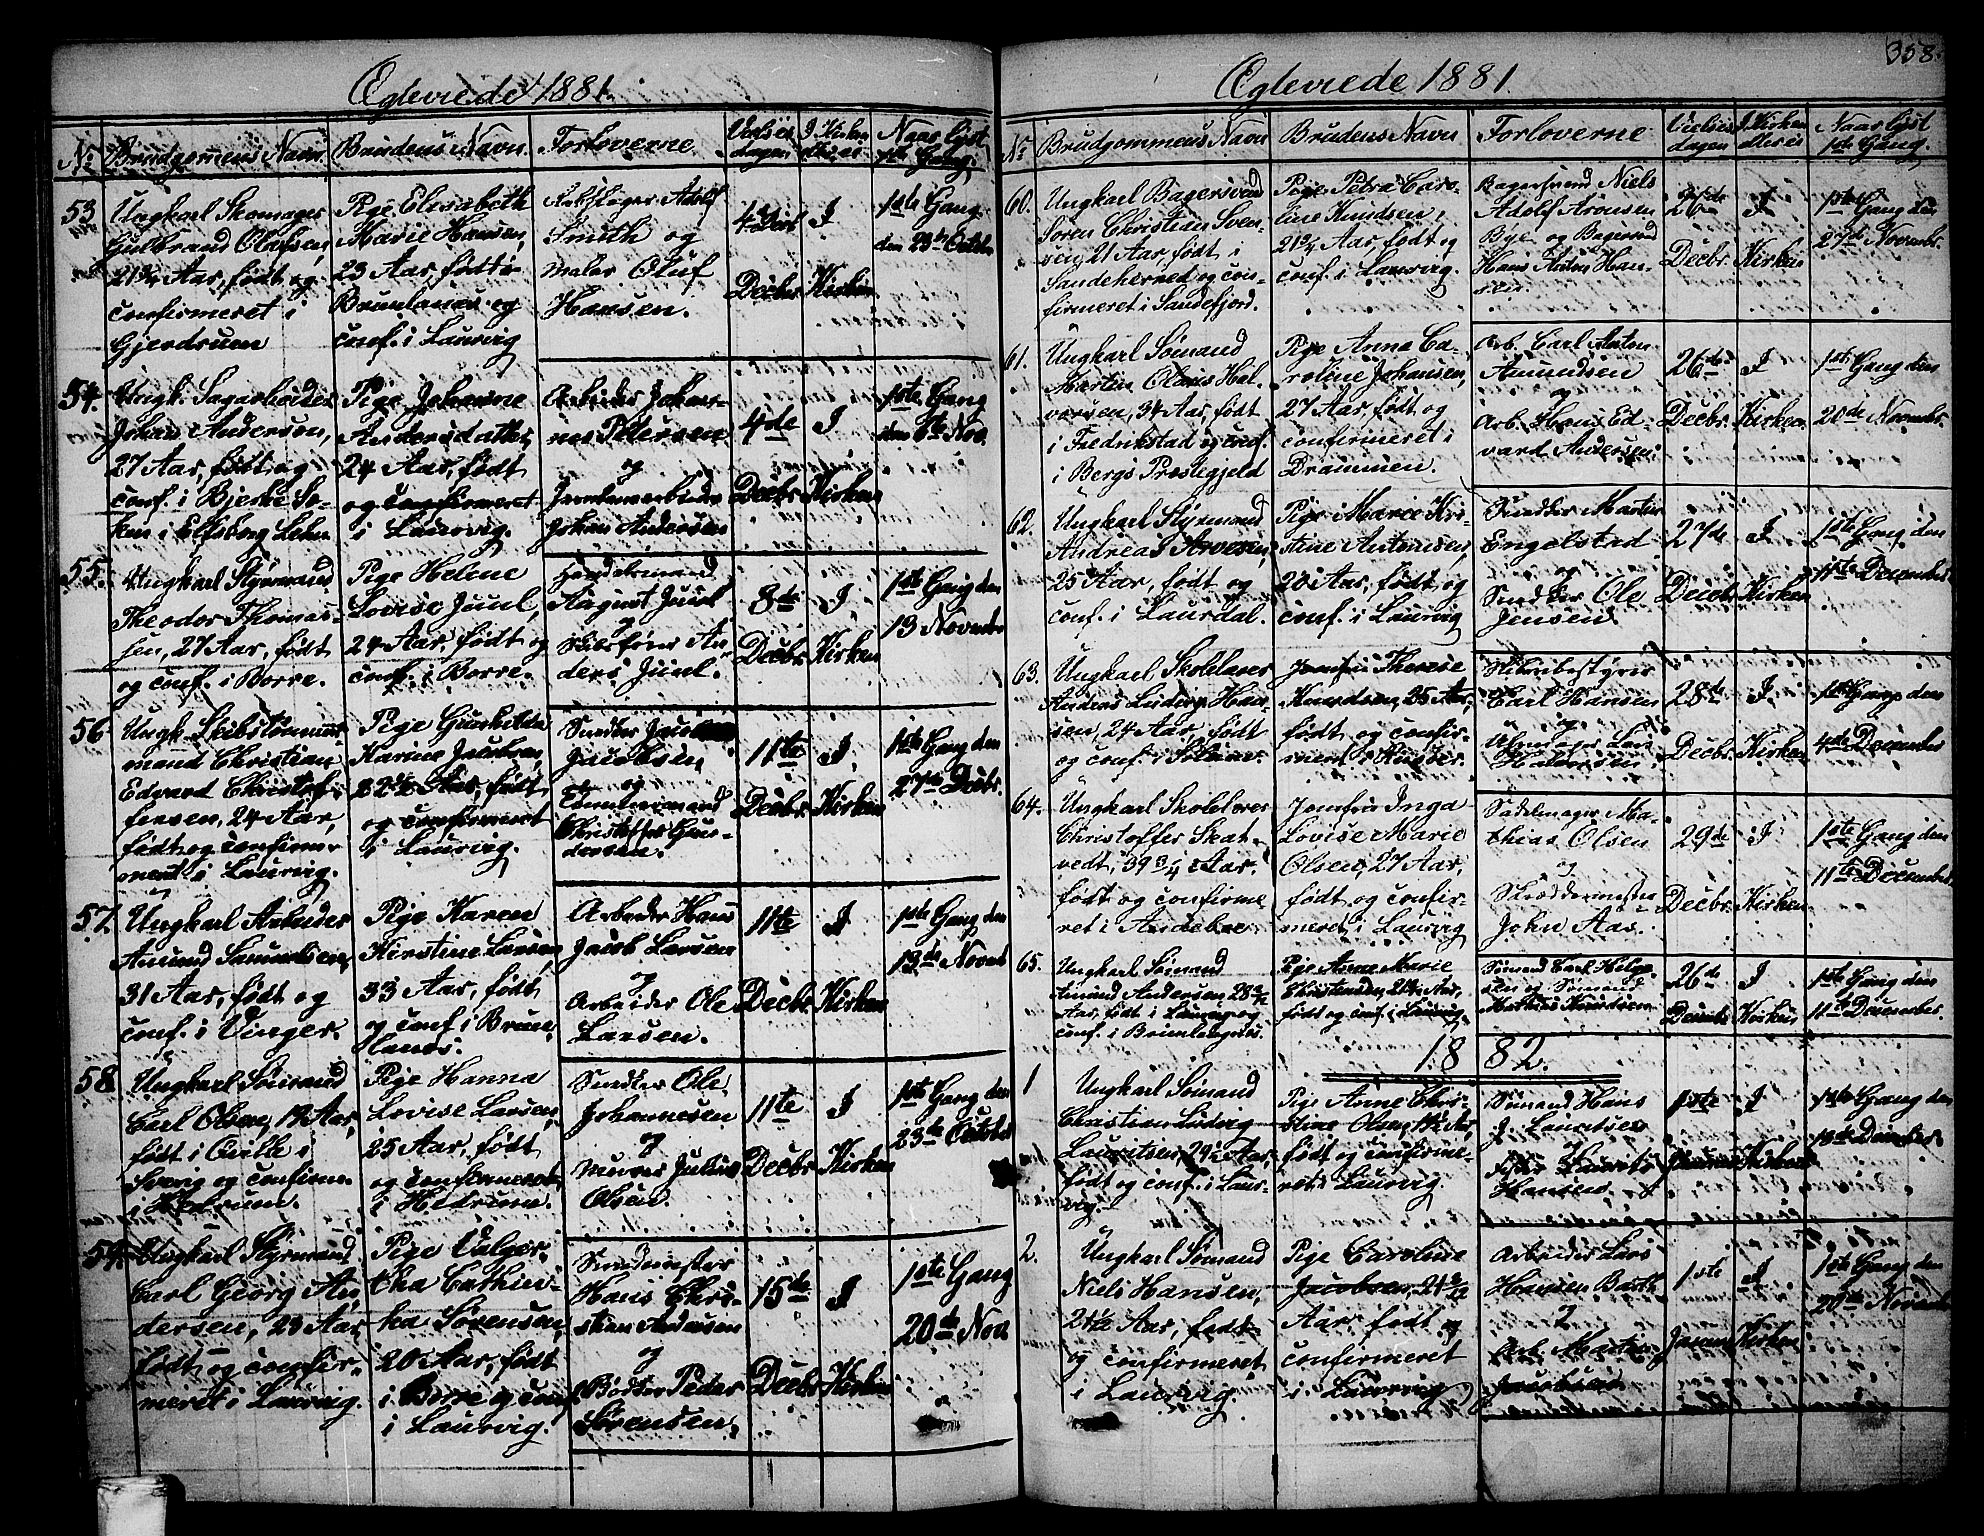 Ægteviede 1881.
No
Brudgommens Navn
Brudens Navn
Forloverne
Vielses
dagen
I Kirken
Naar lyst
1ste Gang.
53
Ungkarl Skomager
Gulbrand Olafsen,
21 3/4 Aar, født og
confirmeret i
Gjerdrum
Pige Elisabeth
Marie Hansen,
23 Aar, født i
Brunlanæs og
conf. i Laurvig
Adolf
Smith og
Maler Oluf
Hansen.
4de
Decbr
I
Kirken
1ste Gang
den 23de October
54.
Ungk. Sagarbeider
Johan Anderson,
27 Aar, født og
conf. i Bjerke So-
ken i Elfsborg Lehn
Pige Johanne
Andersdatter,
24 Aar, født
og confirmeret
i Laurvig.
Arbeider Johan-
nes Petersen
og
Johan Andersen
4de
Decbr
I
Kirken
1ste Gang
den 6te Nov.
55.
Ungkarl Styrmand
Theodor Thomas-
sen, 27 Aar, født
og conf. i Borre.
Pige Helene
Lovise Juul,
24 Aar, født og
conf. i Borre.
Handelsmand
August Juul
og
Skibsfører An-
ders Juul.
8de
Decbr
I
Kirken
1ste Gang den
13 November
56
Ungk. Skibstømmer-
mand Christian
Edvard Christof-
fersen, 24 Aar,
født og confirme-
ret i Laurvig.
Pige Gunhilda
Karine Jacobsen,
22 1/2 Aar, født
og confirmeret
i Laurvig.
Snedker Jacob
Jacobsen
og
Tømmermand
Christoffer Gun-
dersen.
11te
Decbr
I
Kirken
1ste Gang den
27de Decbr.
57.
Ungkarl Arbeider
Amund Samuelsen,
31 Aar, født og
conf. i Vinger.
Pige Karen
Kirstine Larsen,
33 Aar, født
og conf. i Brun-
lanæs.
Arbeider Hans
Jacob Larsen
og
Arbeider Ole
Larsen.
11te
Decbr
I
Kirken
1ste Gang den
13de Novbr
58.
Ungkarl Sømand
Carl Olsen, 19 Aar,
født i
Sverig og confirm.
i Hedrum.
Pige Hanna
Lovise Larsen,
25 Aar, født
og confirmeret
i Hedrum.
Snedker Ole
Johannesen
og
Murer Julius
Olsen.
11te
Decbr
I
Kirken
1ste Gang den
23de October
59.
Ungkarl Styrmand
Carl Georg An-
dersen, 23 Aar,
født og confir-
meret i Laurvig.
Pige Valger-
tha Cathin-
ka Sørensen,
20 Aar, født
i Borre og conf.
i Laurvig.
Snedmester
Hans Chri-
stian Andersen
og
Bødker Peder
Sørensen.
15de
Decbr
I
Kirken
1ste Gang
20de Nov.
Ægteviede 1881.
358.
No
Brudgommens Navn
Brudens Navn
Forloverne
Vielses
dagen
I Kirken
Naar lyst
1ste Gang.
60.
Ungkarl Bagersvend
Søren Christian Sven-
ven, 21 Aar, født i
Sandeherred og con-
firmeret i Sandefjord.
Pige Petra Caro-
line Knudsen,
21 3/4 Aar, født og
conf. i Laurvig.
Bagersvend Niels
Adolf Aronsen
Bye og Bagersvend
Hans Anton Han-
sen.
26de
Decbr.
I
Kirken
1ste Gang den
27de Novembr.
61.
Ungkarl Sømand
Martin Olaus Hal-
vorsen, 34 Aar, født
i Fredrikstad og conf.
i Bergs Præstegjeld
Pige Anne Ca-
roline Johansen,
27 Aar, født og
confirmeret i
Drammen.
Arb. Carl Anton
Amundsen
og
Arb. Hans Ed-
vard Andersen
26de
Decbr.
I
Kirken
1ste Gang den
20de Novembr.
62.
Ungkarl Styrmand
Andreas Arvesen,
25 Aar, født og
conf. i Laurdal.
Pige Marie Kri-
stine Antonisen,
20 Aar, født og
conf. i Laurvig
Snedker Martin
Engelstad
og
Snedker Ole
Jensen
27de
Decbr
I
Kirken
1ste Gang den
11te December
63.
Ungkarl Skolelærer
Anders Ludvig Han-
sen, 24 Aar, født
og conf. i
Jomfru Therese
Knudsen, 25 Aar,
født og confir-
meret i
Carl Hansen
og
28de
Decbr
I
Kirken
1ste Gang den
4de December
64.
Ungkarl Skolelærer
Christoffer Skat-
vedt, 39 3/4 Aar,
født og confirme-
ret i Andebue.
Jomfru Inga
Lovise Marie
Olsen, 27 Aar,
født og confir-
meret i Laurvig
Sadelmager Ma-
thias Olsen
og
Skræddermester
John Aas.
29de
Decbr
I
Kirken
1ste Gang den
11te December
65.
Ungkarl Sømand
Amund Andersen,
Aar, født i Laurvig og
conf. i Brunlangnæs.
Pige Anne Marie
Christensen, 21 1/2 Aar,
født og conf. i Laurvig.
Sømand Carl Helge-
sen og Sømand
Mathias Knudsen
26de
Decembr
I
Kirken
1ste Gang den
11te December.
1882.
1
Ungkarl Sømand
Christian Ludvig
Lauritsen, Aar,
født og conf. i Laur-
vig.
Pige Anne Chri-
stine Olsen, 19 1/2 Aar,
født og confirme-
ret i Laurvig.
Sømand Hans
J. Lauritsen
Laurits
Hansen.
1ste
Januar
I
Kirken
1ste Gang den
18de December
2.
Ungkarl Sømand
Niels Hansen,
21 1/2 Aar, født
og confirmeret
i Laurvig.
Pige Caroline
Jacobsen,
Aar, født og
confirmeret
i Laurvig
Arbeider Lars
Hansen Barth
Arb. Martin
Jacobsen
1ste
Januar
I
Kirken
1ste Gang den
20de Novembr